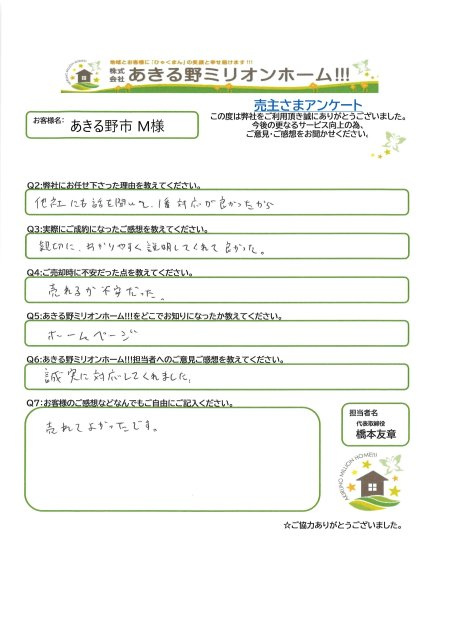 地域とお客様に「ひゃくまん」の笑顔と幸せ届けます!!!
株式会社 あきる野ミリオンホーム!!!
売主さまアンケート
お客様名: あきる野市 M様
この度は弊社をご利用頂き誠にありがとうございました。
今後の更なるサービス向上の為、
ご意見・ご感想をお聞かせください。
Q2:弊社にお任せ下さった理由を教えてください。
他社にも話を聞いて、1番対応が良かったから
Q3:実際にご成約になったご感想を教えてください。
親切に、わかりやすく説明してくれて良かった。
Q4:ご売却時に不安だった点を教えてください。
売れるか不安だった。
Q5:あきる野ミリオンホーム!!!をどこでお知りになったか教えてください。
ホームページ
Q6:あきる野ミリオンホーム!!!担当者へのご意見ご感想を教えてください。
誠実に対応してくれました。
Q7:お客様のご感想などなんでもご自由にご記入ください。
売れてよかったです。
担当者名
代表取締役
橋本友章
AKIRUNO MILLION HOME!!!
☆ご協力ありがとうございました。